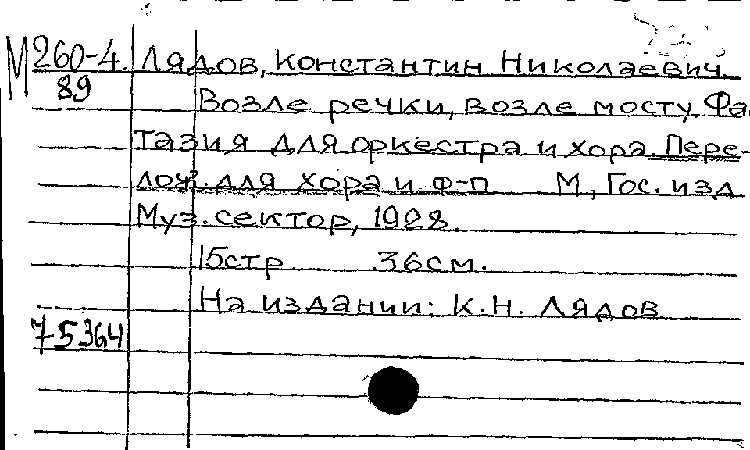 М 260-4 Лядов, Константин Николаевич
89 Возле речки, возле мосту. Фа
тазия для оркестра и хора. Пере-
лож. для хора и ф-п М, Гос. изд
Муз. сектор, 1928.
15стр 36см.
На издании: К.Н. Лядов
75364